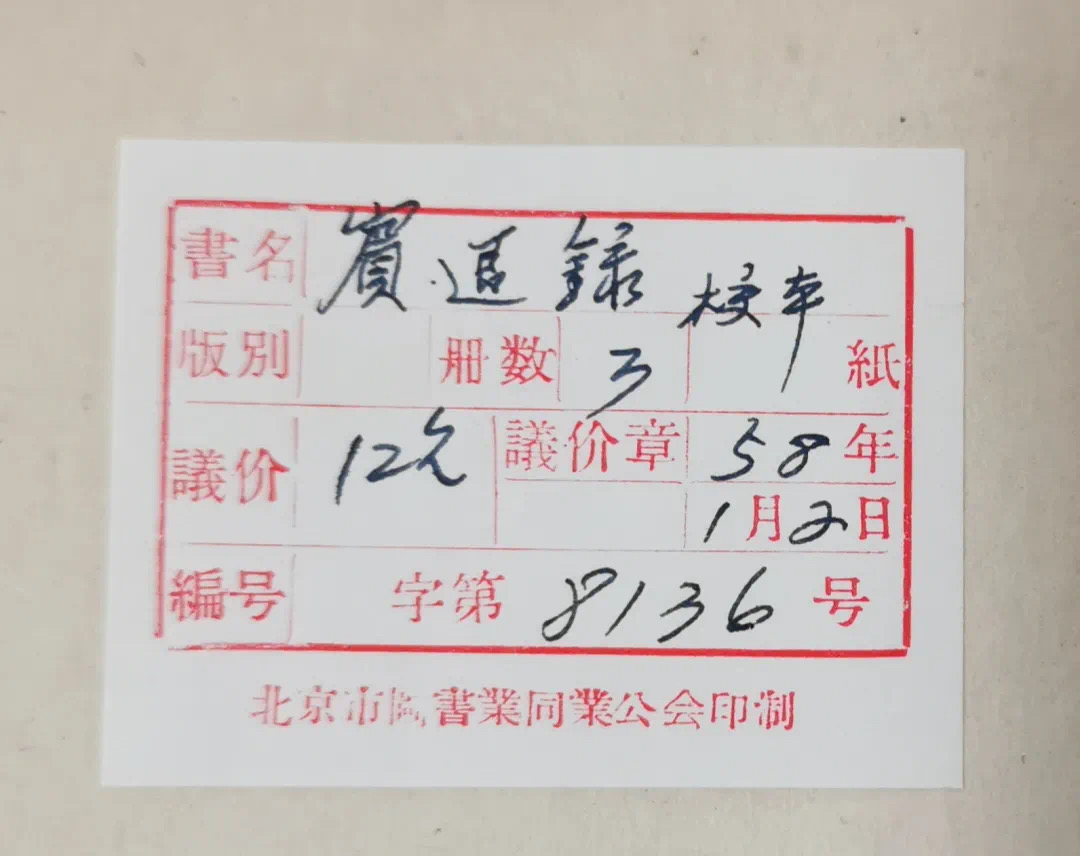 書名 賓退録 校本
版別 册数 3 紙
議价 12元 議价章 58年
1月2日
編号 字第 8136 号
北京市書業同業公会印制